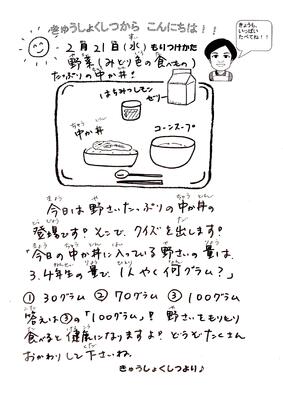 きゅうしょくしつから こんにちは！！
きょうも、
いっぱい
たべてね！！
2月21日(水) もりつけかた
野菜(みどり色の食べもの)
たっぷりの中か丼！
はちみつレモン
ゼリー
中か丼
コーンスープ
今日は野さいたっぷりの中か丼の
登場です！そこで、クイズを出します！
「今日の中か丼に入っている野さいの量は、
3.4年生の量で、1人やく何グラム？」
①30グラム ②70グラム ③100グラム
答えは③の「100グラム」！野さいをもりもり
食べると健康になりますよ！どうぞたくさん
おかわりして下さいね。
きゅうしょくしつより♪